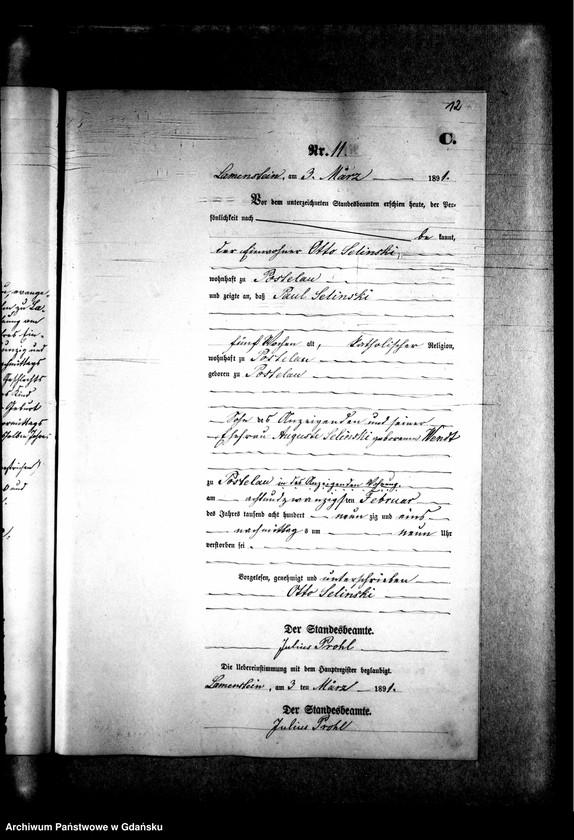 12
C.
Nr. 11
Lamenstein, am 3. März 1891.
Vor dem unterzeichneten Standesbeamten erschien heute, der Per-
sönlichkeit nach
be kannt,
der Einwohner Otto Selinski,
wohnhaft zu Postelau
und zeigte an, daß Paul Selinski
fünf Wochen alt, katholischer Religion,
wohnhaft zu Postelau
geboren zu Postelau
Sohn des Anzeigenden und seiner
Ehefrau Auguste Selinski geborenen Wendt
zu Postelau in des Anzeigenden Wohnung
am achtundzwanzigsten Februar
des Jahres tausend acht hundert neun zig und eins
nachmittag s um neun Uhr
verstorben sei.
Vorgelesen, genehmigt und unterschrieben
Otto Selinski
Der Standesbeamte.
Julius Prohl
Die Uebereinstimmung mit dem Hauptregister beglaubigt.
Lamenstein, am 3 ten März 1891.
Der Standesbeamte.
Julius Prohl
Archiwum Państwowe w Gdańsku